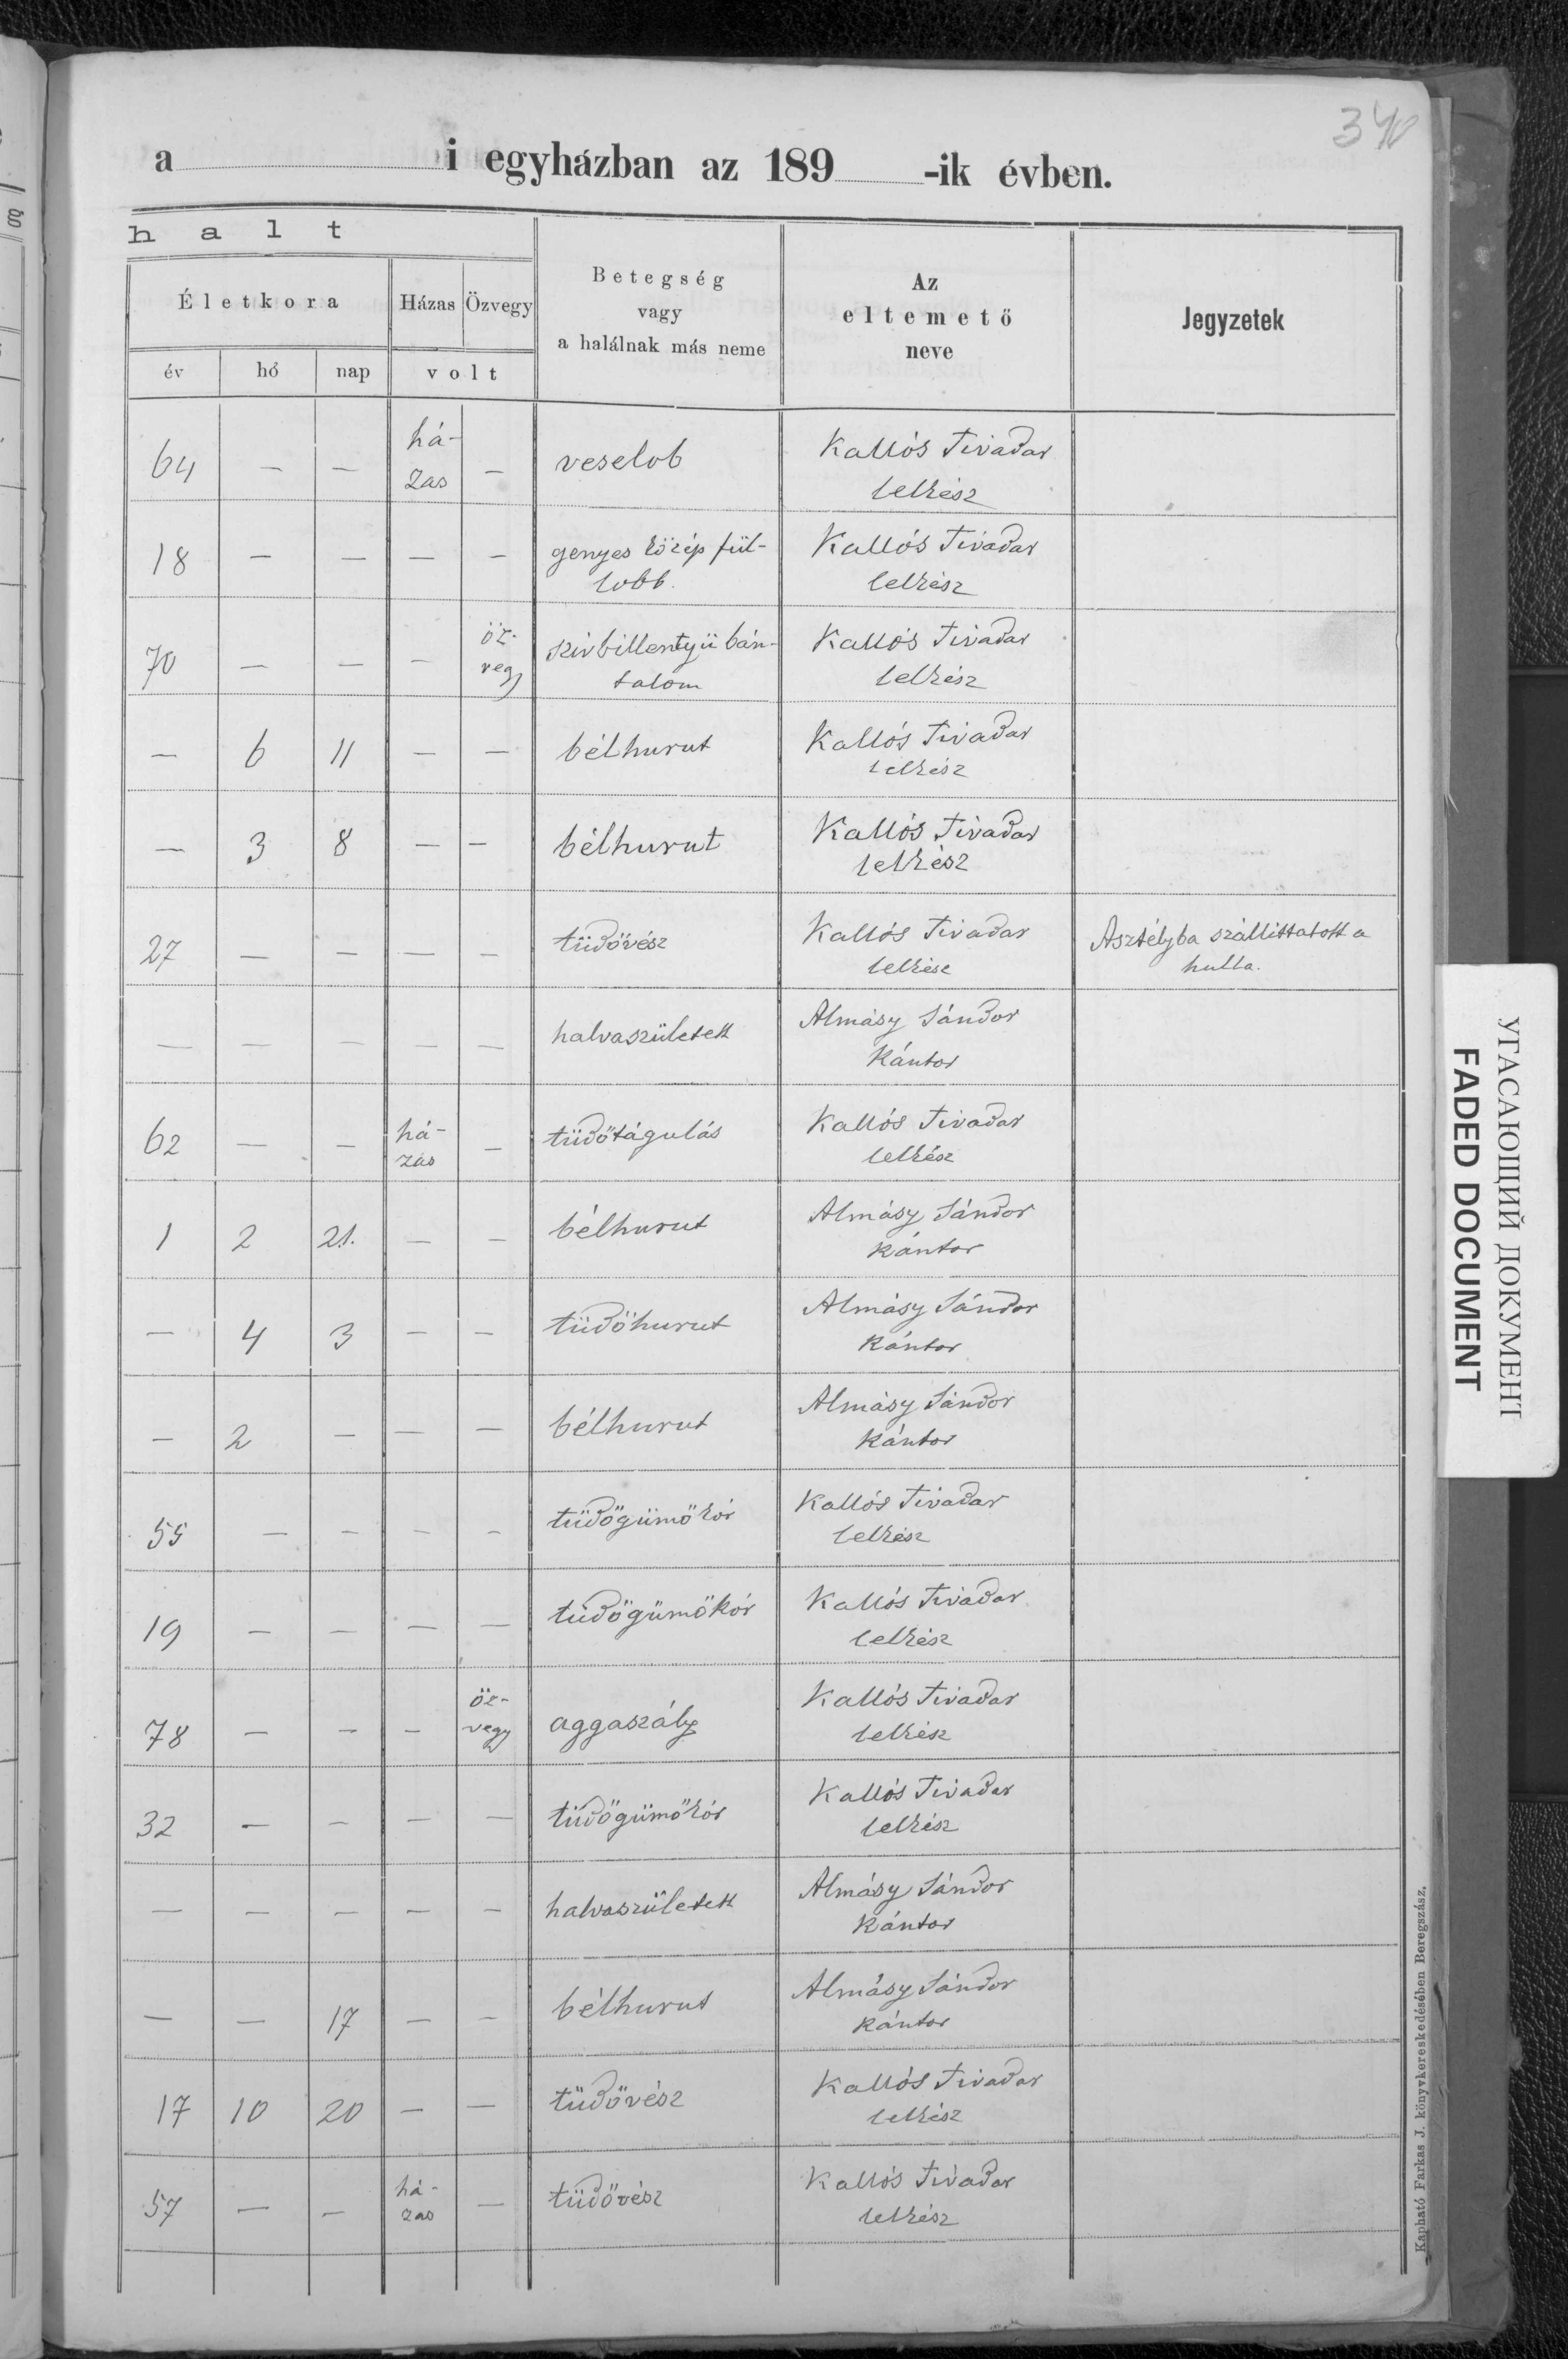 340
a i egyházban az 189 -ik évben.
halt
Életkora Házas Özvegy
Betegség
vagy
a halálnak más neme
Az
eltemető
neve
Jegyzetek
év hó nap volt
64 — — há-
zas — veselob Kallós Tivadar
lelkész
18 — — — — genyes közép fül-
lobb. Kallós Tivadar
lelkész
70 — — — öz-
vegy szivbillentyü bán-
talom Kallós Tivadar
lelkész
— 6 11 — — bélhurut Kallós Tivadar
lelkész
— 3 8 — — bélhurut Kallós Tivadar
lelkész
27 — — — — tüdövész Kallós Tivadar
lelkész Asztélyba szállittatott a
hulla.
— — — — — halvaszületett Almásy Sándor
Kántor
62 — — há-
zas — tüdőtágulás Kallós Tivadar
lelkész
1 2 21. — — bélhurut Almásy Sándor
kántor
— 4 3 — — tüdöhurut Almásy Sándor
kántor
— 2 — — — bélhurut Almásy Sándor
kántor
55 — — — — tüdőgümőkór Kallós Tivadar
lelkész
19 — — — — tüdőgümőkór Kallós Tivadar
lelkész
78 — — — öz-
vegy aggaszály Kallós Tivadar
lelkész
32 — — — — tüdőgümőkór Kallós Tivadar
lelkész
— — — — — halvaszületett Almásy Sándor
kántor
— — 17 — — bélhurut Almásy Sándor
kántor
17 10 20 — — tüdővész Kallós Tivadar
lelkész
57 — — há-
zas — tüdővész Kallós Tivadar
lelkész
Kapható Farkas J. könyvkereskedésében Beregszász.
УГАСАЮЩИЙ ДОКУМЕНТ
FADED DOCUMENT